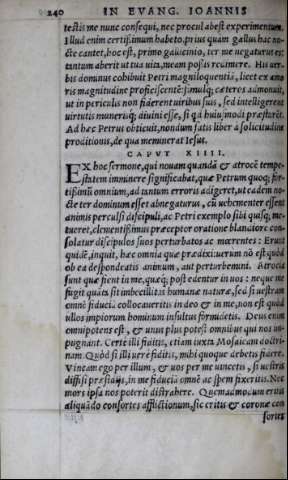 240 IN EVANG. IOANNIS
tectis me nunc consequi, nec procul abest experimentum.
Illud enim certißimum habeto, prius quam gallus hac no-
cte cantet, hoc est, primo galicinio, ter me negaturus es:
tantum aberit ut tua uita, meam poßis redimere. His uer-
bis dominus cohibuit Petri magniloquentiã, licet ex amo
ris magnitudine proficiscentẽ: simulq́; cæteros admonuit,
ut in periculis non fiderent uiribus suis, sed intelligerent
uirtutis munerisq́; diuini esse, si qd huiusmodi præstarẽt.
Ad hæc Petrus obticuit, nondum satis liber à solicitudine
proditionis, de qua meminerat Iesus.
CAPVT XIIII.
EX hoc sermone, qui nouam quandã & atrocẽ tempe-
statem imminere significabat, quæ Petrum quoq; for-
tißimũ omnium, ad tantum erroris adigeret, ut eadem no-
cte ter dominum esset abnegaturus, cũ uehementer essent
animis perculsi discipuli, ac Petri exemplo sibi quisq; me-
tueret, clementißimus præceptor oratione blandiore con-
solatur discipulos suos perturbatos ac mœrentes: Erunt
quidẽ, inquit, hæc omnia quæ prædixi: uerum nõ est quòd
ob ea despondeatis animum, aut perturbemini. Atrocia
sunt quæ fient in me, quæq́; post edentur in uos: neque me
fugit quàm sit imbecillitas humanæ naturæ, sed si uestram
omnẽ fiduciã collocaueritis in deo & in me, non est quòd
ullos impiorum hominum insultus formidetis. Deus enim
omnipotens est, & unus plus potest omnibus qui nos im-
pugnant. Certe illi fiditis, etiam iuxta Mosaicam doctri-
nam. Quòd si illi uere fiditis, mihi quoque debetis fidere.
Vincam ego per illum, & uos per me uincetis, si uestris
diffisi præsidijs, in me fiduciã omnẽ ac spem fixeritis. Nec
mors ipsa nos poterit distrahere. Quemadmodum eritis
aliquãdo consortes afflictionum, sic eritis & coronæ con
sortes